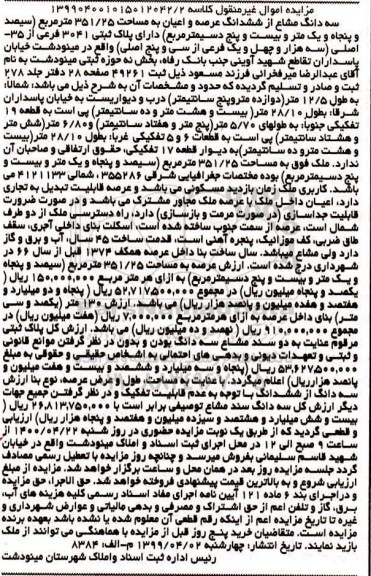 مزایده اموال غیرمنقول کلاسه ۱۳۹۹۰۴۰۰۱۰۱۵۰۱۲۰۴۲/۲
سه دانگ مشاع از ششدانگ عرصه و اعیان به مساحت ۳۵۱/۲۵ مترمربع (سیصد
و پنجاه و یک متر و بیست و پنج دسیمترمربع) دارای پلاک ثبتی ۳۰۴۱ فرعی از ۳۵-
اصلی (سه هزار و چهل و یک فرعی از سی و پنج اصلی) واقع در مینودشت خیابان
پاسداران تقاطع شهید آوینی جنب بانک رفاه، بخش نه حوزه ثبتی مینودشت به نام
آقای عبدالرضا میرفخرانی فرزند مسعود ذیل ثبت ۴۹۲۶۱ صفحه ۲۸ دفتر جلد ۲۷۸
ثبت و صادر و تسلیم گردیده که حدود و مشخصات آن به شرح ذیل می باشد: شمالا:
به طول ۱۲/۵ متر (دوازده متروپنج سانتیمتر) درب و دیواریست به خیابان پاسداران
شرقا: بطول ۲۸/۱۰ متر (بیست و هشت متر و ده سانتیمتر) پی است به قطعه ۱۹
تفکیکی جنوبا: به طولهای ۵/۷۰ متر (پنج متر و هفتاد سانتیمتر) و ۶/۸۰ متر (شش متر
و هشتاد سانتیمتر) پی است به قطعات ۶ و ۵ تفکیکی غربا: بطول ۲۸/۱۰ متر (بیست
و هشت مترو ده سانتیمتر) به دیوار قطعه ۱۷ تفکیکی، حقوق ارتفاقی و صاحبان آن
ندارد. ملک فوق به مساحت ۳۵۱/۲۵ مترمربع (سیصد و پنجاه و یک متر و بیست و
پنج دسیمترمربع) بوده مختصات جغرافیایی شرقی ۳۵۵۲۸۶، شمالی ۴۱۲۱۱۳۳ می
باشد. کاربری ملک زمان بازدید مسکونی می باشد و عرصه قابلیت تبدیل به تجاری
دارد، اعیان داخل ملک با عرصه ملک مجاور مشترک می باشد و در صورت ضرورت
قابلیت جداسازی (در صورت مرمت و بازسازی) دارد، راه دسترسی ملک از دو طرف
شمال است، عرصه از سمت جنوب ساخته شده است، اسکلت بنای داخلی آجری، سقف
طاق ضربی، کف موزائیک، پنجره آهنی است، قدمت ساخت ۴۵ سال، آب و برق و گاز
دارد ولی مشاع میباشد. سال ساخت بنا داخل عرصه همکف ۱۳۷۴ قبل از سال ۶۶ در
شهرداری درج شده است. ارزش عرصه به مساحت ۳۵۱/۲۵ مترمربع (سیصد و پنجاه
و یک متر و بیست و پنج دسیمترمربع) به ازای هر متر مربع ۱۵۰٫۰۰۰٫۰۰۰ ریال (
یکصد و پنجاه میلیون ریال) در مجموع ۵۲٫۷۱۷٫۵۰۰٫۰۰۰ ریال (پنجاه و دو میلیارد و
هفتصد و هفده میلیون و پانصد هزار ریال) می باشد. ارزش ۱۳۰ متر (یکصد و سی
متر) بنای داخل عرصه به ازای هر مترمربع ۷٫۰۰۰٫۰۰۰ ریال (هفت میلیون ریال) در
مجموع ۹۱۰٫۰۰۰٫۰۰۰ ریال (نهصد و ده میلیون ریال) می باشد. ارزش کل پلاک ثبتی
مرقوم عنایت به دو سند مشاع سه دانگ بودن و بدون در نظر گرفتن موانع قانونی
و ثبتی و تعهدات دیونی و بدهی های احتمالی به اشخاص حقیقی و حقوقی به مبلغ
۵۳٫۶۲۷٫۵۰۰٫۰۰۰ ریال (پنجاه و سه میلیارد و ششصد و بیست و هفت میلیون و
پانصد هزارریال) اعلام میگردد. با عنایت به مساحت، طول و عرض عرصه، نوع بنا ارزش
سه دانگ از ششدانگ با توجه به عدم قابلیت تفکیک و در نظر گرفتن جمیع جهات
دیگر ارزش کل سه دانگ سند مشاع توصیفی برابر است با ۲۶٫۸۱۳٫۷۵۰٫۰۰۰ ریال (
بیست و شش میلیارد و هشتصد و سیزده میلیون و هفتصد و پنجاه هزار ریال) ارزیابی
و قطعی گردید که از طریق یک نوبت مزایده حضوری در روز شنبه ۱۴۰۰/۰۴/۲۲ از
ساعت ۹ صبح الی ۱۲ در محل اجرای ثبت اسناد و املاک مینودشت واقع در خیابان
شهید قاسم سلیمانی بفروش میرسد و چنانچه روز مزایده با تعطیل رسمی مصادف
گردد جلسه مزایده روز بعد در همان محل و ساعت برگزار خواهد شد. مزایده از مبلغ
ارزیابی شروع و به بالاترین قیمت پیشنهادی فروخته خواهد شد. حق الاجرا، حق مزایده
و دراجرای بند ۶ ماده ۱۲۱ آیین نامه اجرای مفاد اسناد رسمی کلیه هزینه های آب،
برق، گاز و تلفن اعم از حق اشتراک و مصرفی و بدهی مالیاتی و عوارض شهرداری و
غیره تا تاریخ مزایده اعم از اینکه رقم قطعی آن معلوم شده یا نشده باشد بعهده برنده
مزایده است. متقاضیان خرید پنج روز قبل از مزایده با هماهنگی می توانند از ملک
بازید نمایند. تاریخ انتشار: چهارشنبه ۱۳۹۹/۰۴/۰۲ م-الف: ۸۳۸۴
رئیس اداره ثبت اسناد واملاک شهرستان مینودشت